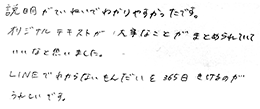 説明がていねいでわかりやすかったです。
オリジナルテキストが大事なことがまとめられていて
いいなと思いました。
LINEでわからないもんだいを365日きけるのが
うれしいです。